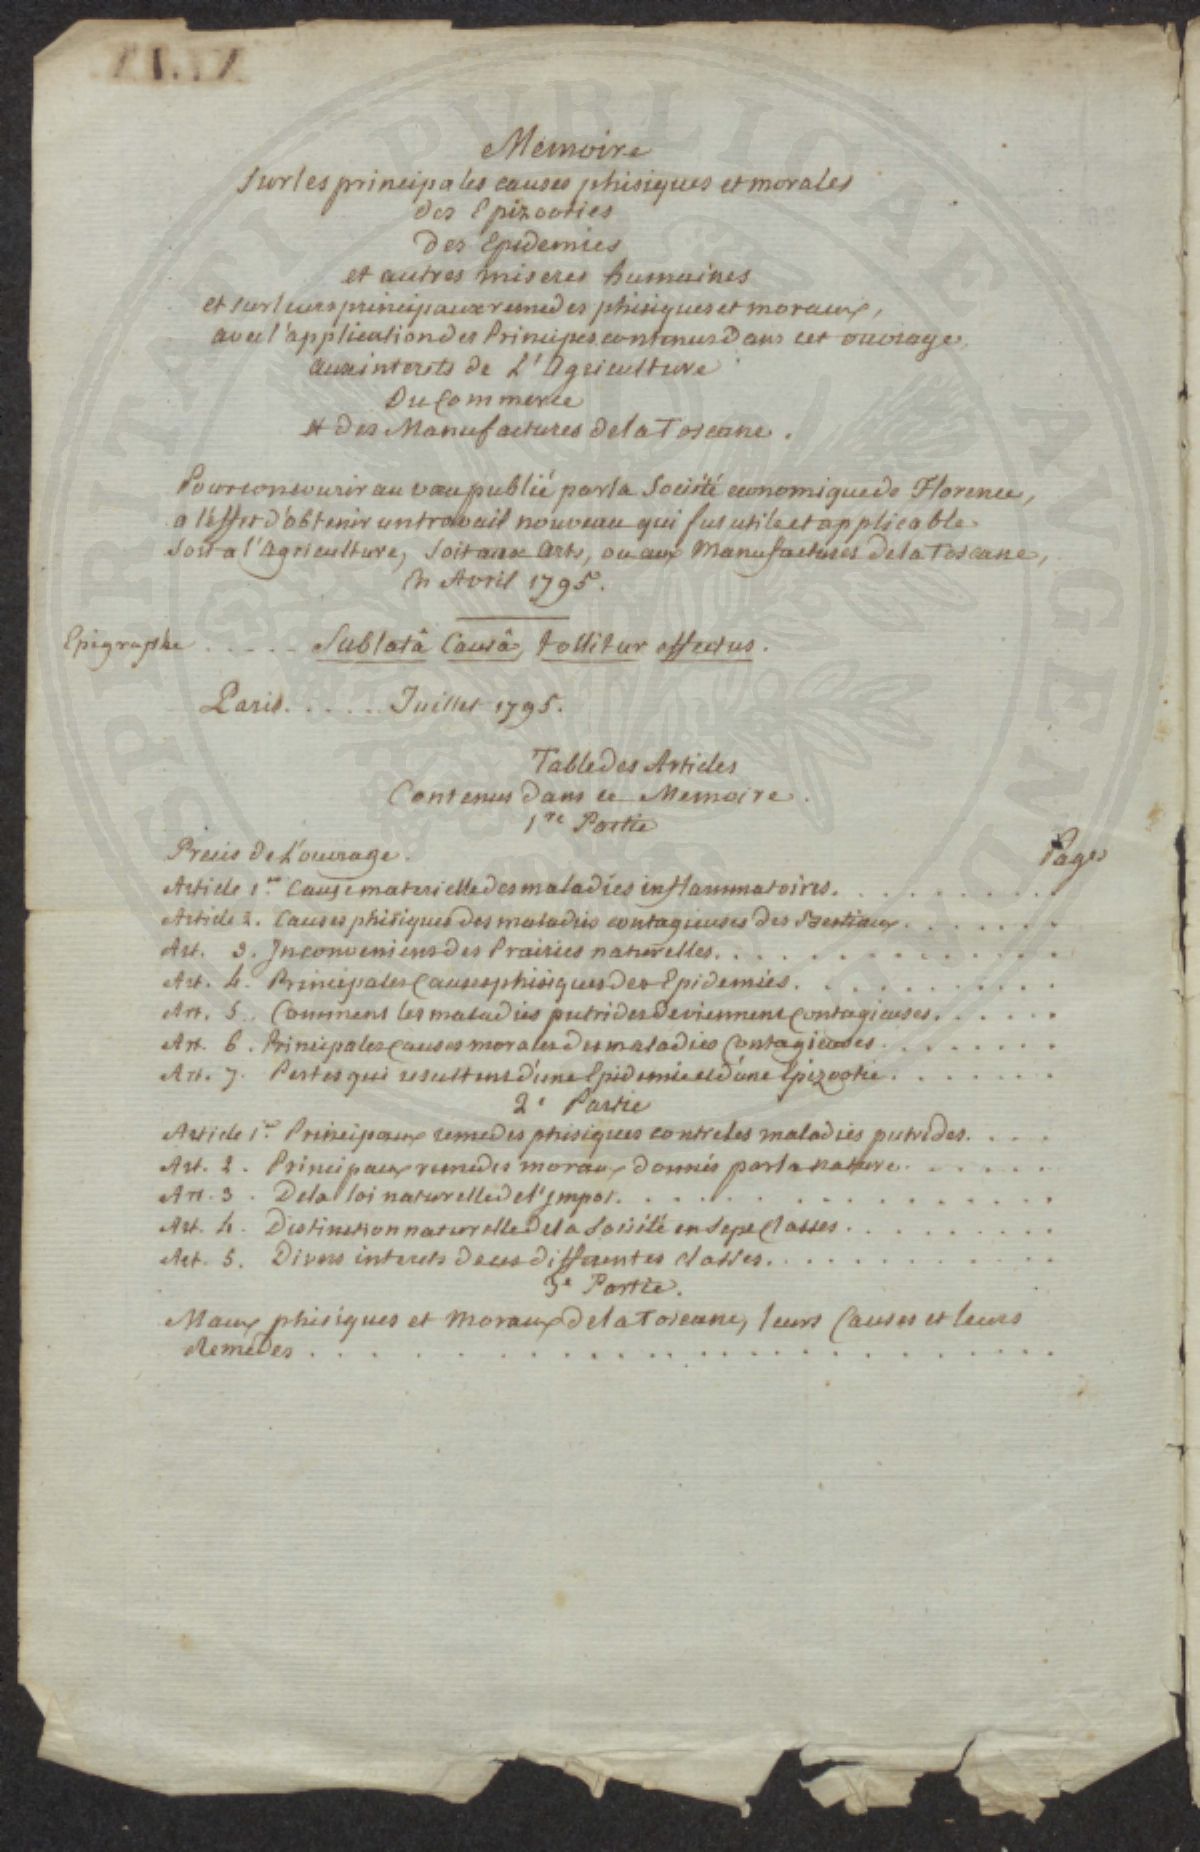 Memoire
sur les principales causes phisiques et morales
des Epizooties
Des Epidemies
et autres miseres humaines
et sur leurs principaux remedes phisiques et moraux,
avec l'application des Principes contenus Dans cet ouvrage,
aux interets de L'Agriculture
Du Commerce
et des Manufactures de la Toscane.
Pour concourir au voeu publié par la Société economique de Florence,
a l'effet d'obtenir un travail nouveau qui fut utile et applicable
soit a l'Agriculture, soit aux Arts, ou aux Manufactures de la Toscane,
Avril 1795.
Epigraphe . . . . . Sublatâ Causâ, tollitur effectus.
Paris. . . . . . Juillet 1795.
Table des Articles
Contenus dans ce Memoire.
1re Partie
Precis de L'ouvrage. Pages
Article 1er Cause materielle des maladies inflammatoires. . . . . . . . . .
Article 2. Causes phisiques des maladies contagieuses des Bestiaux. . . . . . .
Art. 3. Inconveniens des Prairies naturelles. . . . . . . . . . . . .
Art. 4. Principales Causes phisiques des Epidemies. . . . . . . . . .
Art. 5. Comment les maladies putrides deviennent Contagieuses. . . . . .
Art. 6. Principales Causes morales des maladies Contagieuses. . . . . . .
Art. 7. Pertes qui resultent d'une Epidemie et d'une Epizootie. . . . . . .
2e Partie
Article 1er Principaux remedes phisiques contre les maladies putrides. . . .
Art. 2. Principaux remedes moraux donnés par la nature. . . . . .
Art. 3. De la loi naturelle de l'Impot. . . . . . . . . . . . . . . .
Art. 4. Distinction naturelle de la Société en Sept Classes. . . . . . . . .
Art. 5. Divers interets de ces differentes Classes. . . . . . . . . . . .
3e Partie.
Maux phisiques et Moraux de la Toscane, leurs Causes et leurs
Remedes . . . . . . . . . . . . . . . . . . . . . .
PUBLICAE